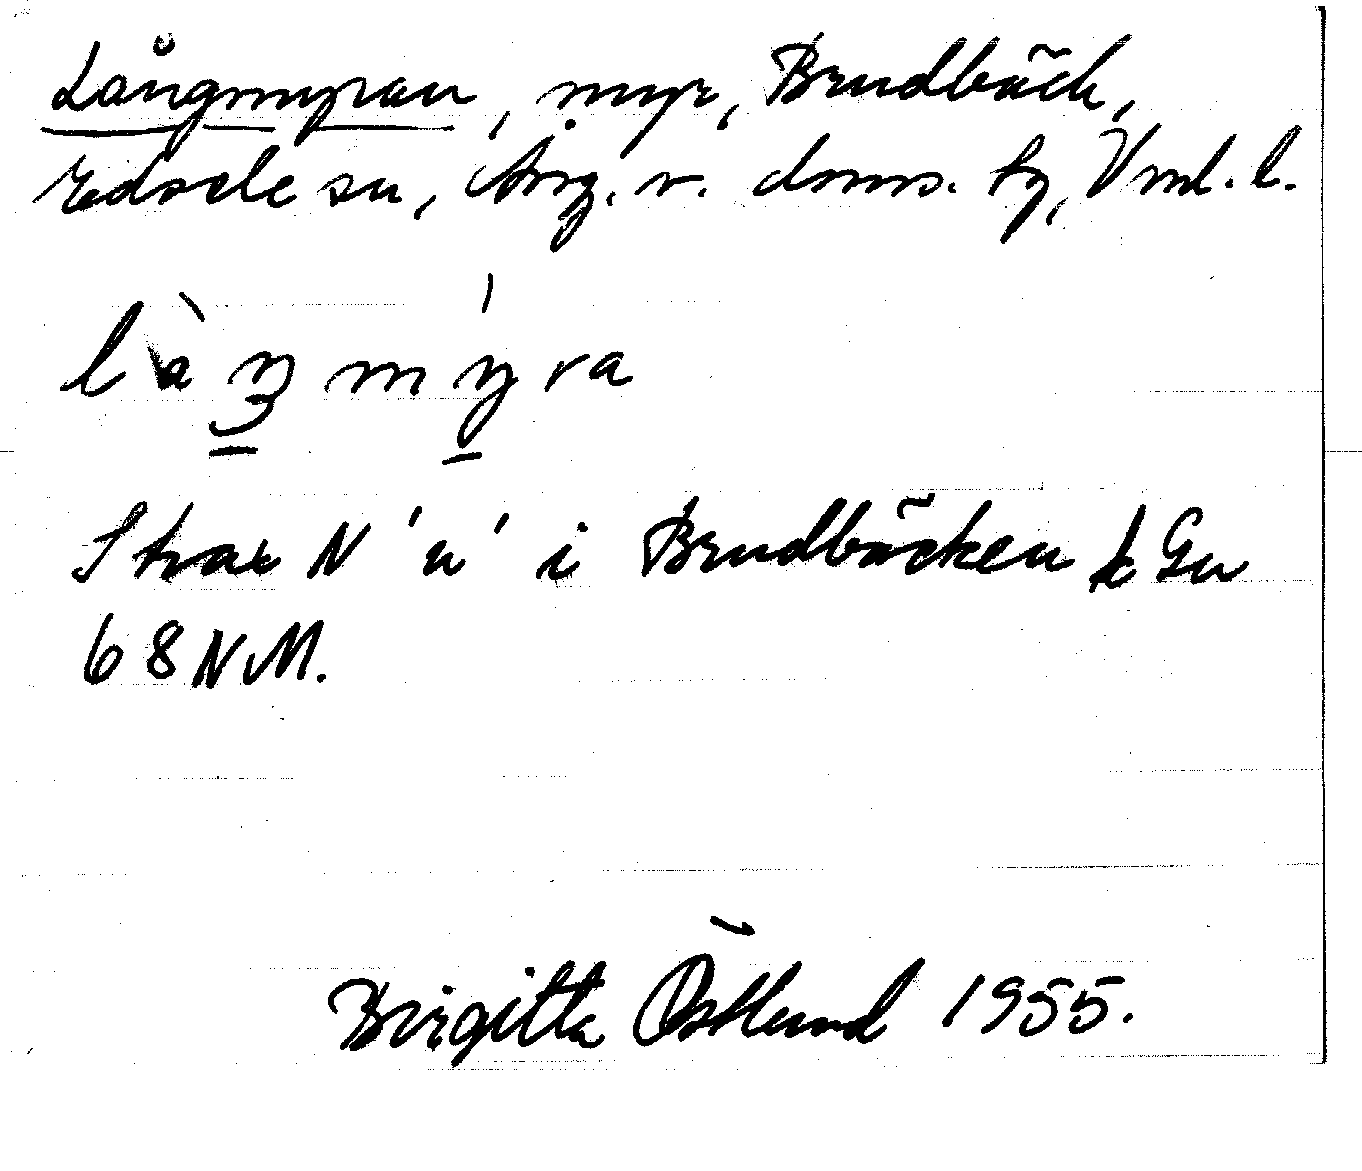 Långmyran, myr, Brudbäck,
Edsele sn, Ång. v. doms. fg, Vnl. l.
làŋmýra
Strax N'n' i Brudbäcken k Gu
68 NM.
Birgitta Östlund 1955.